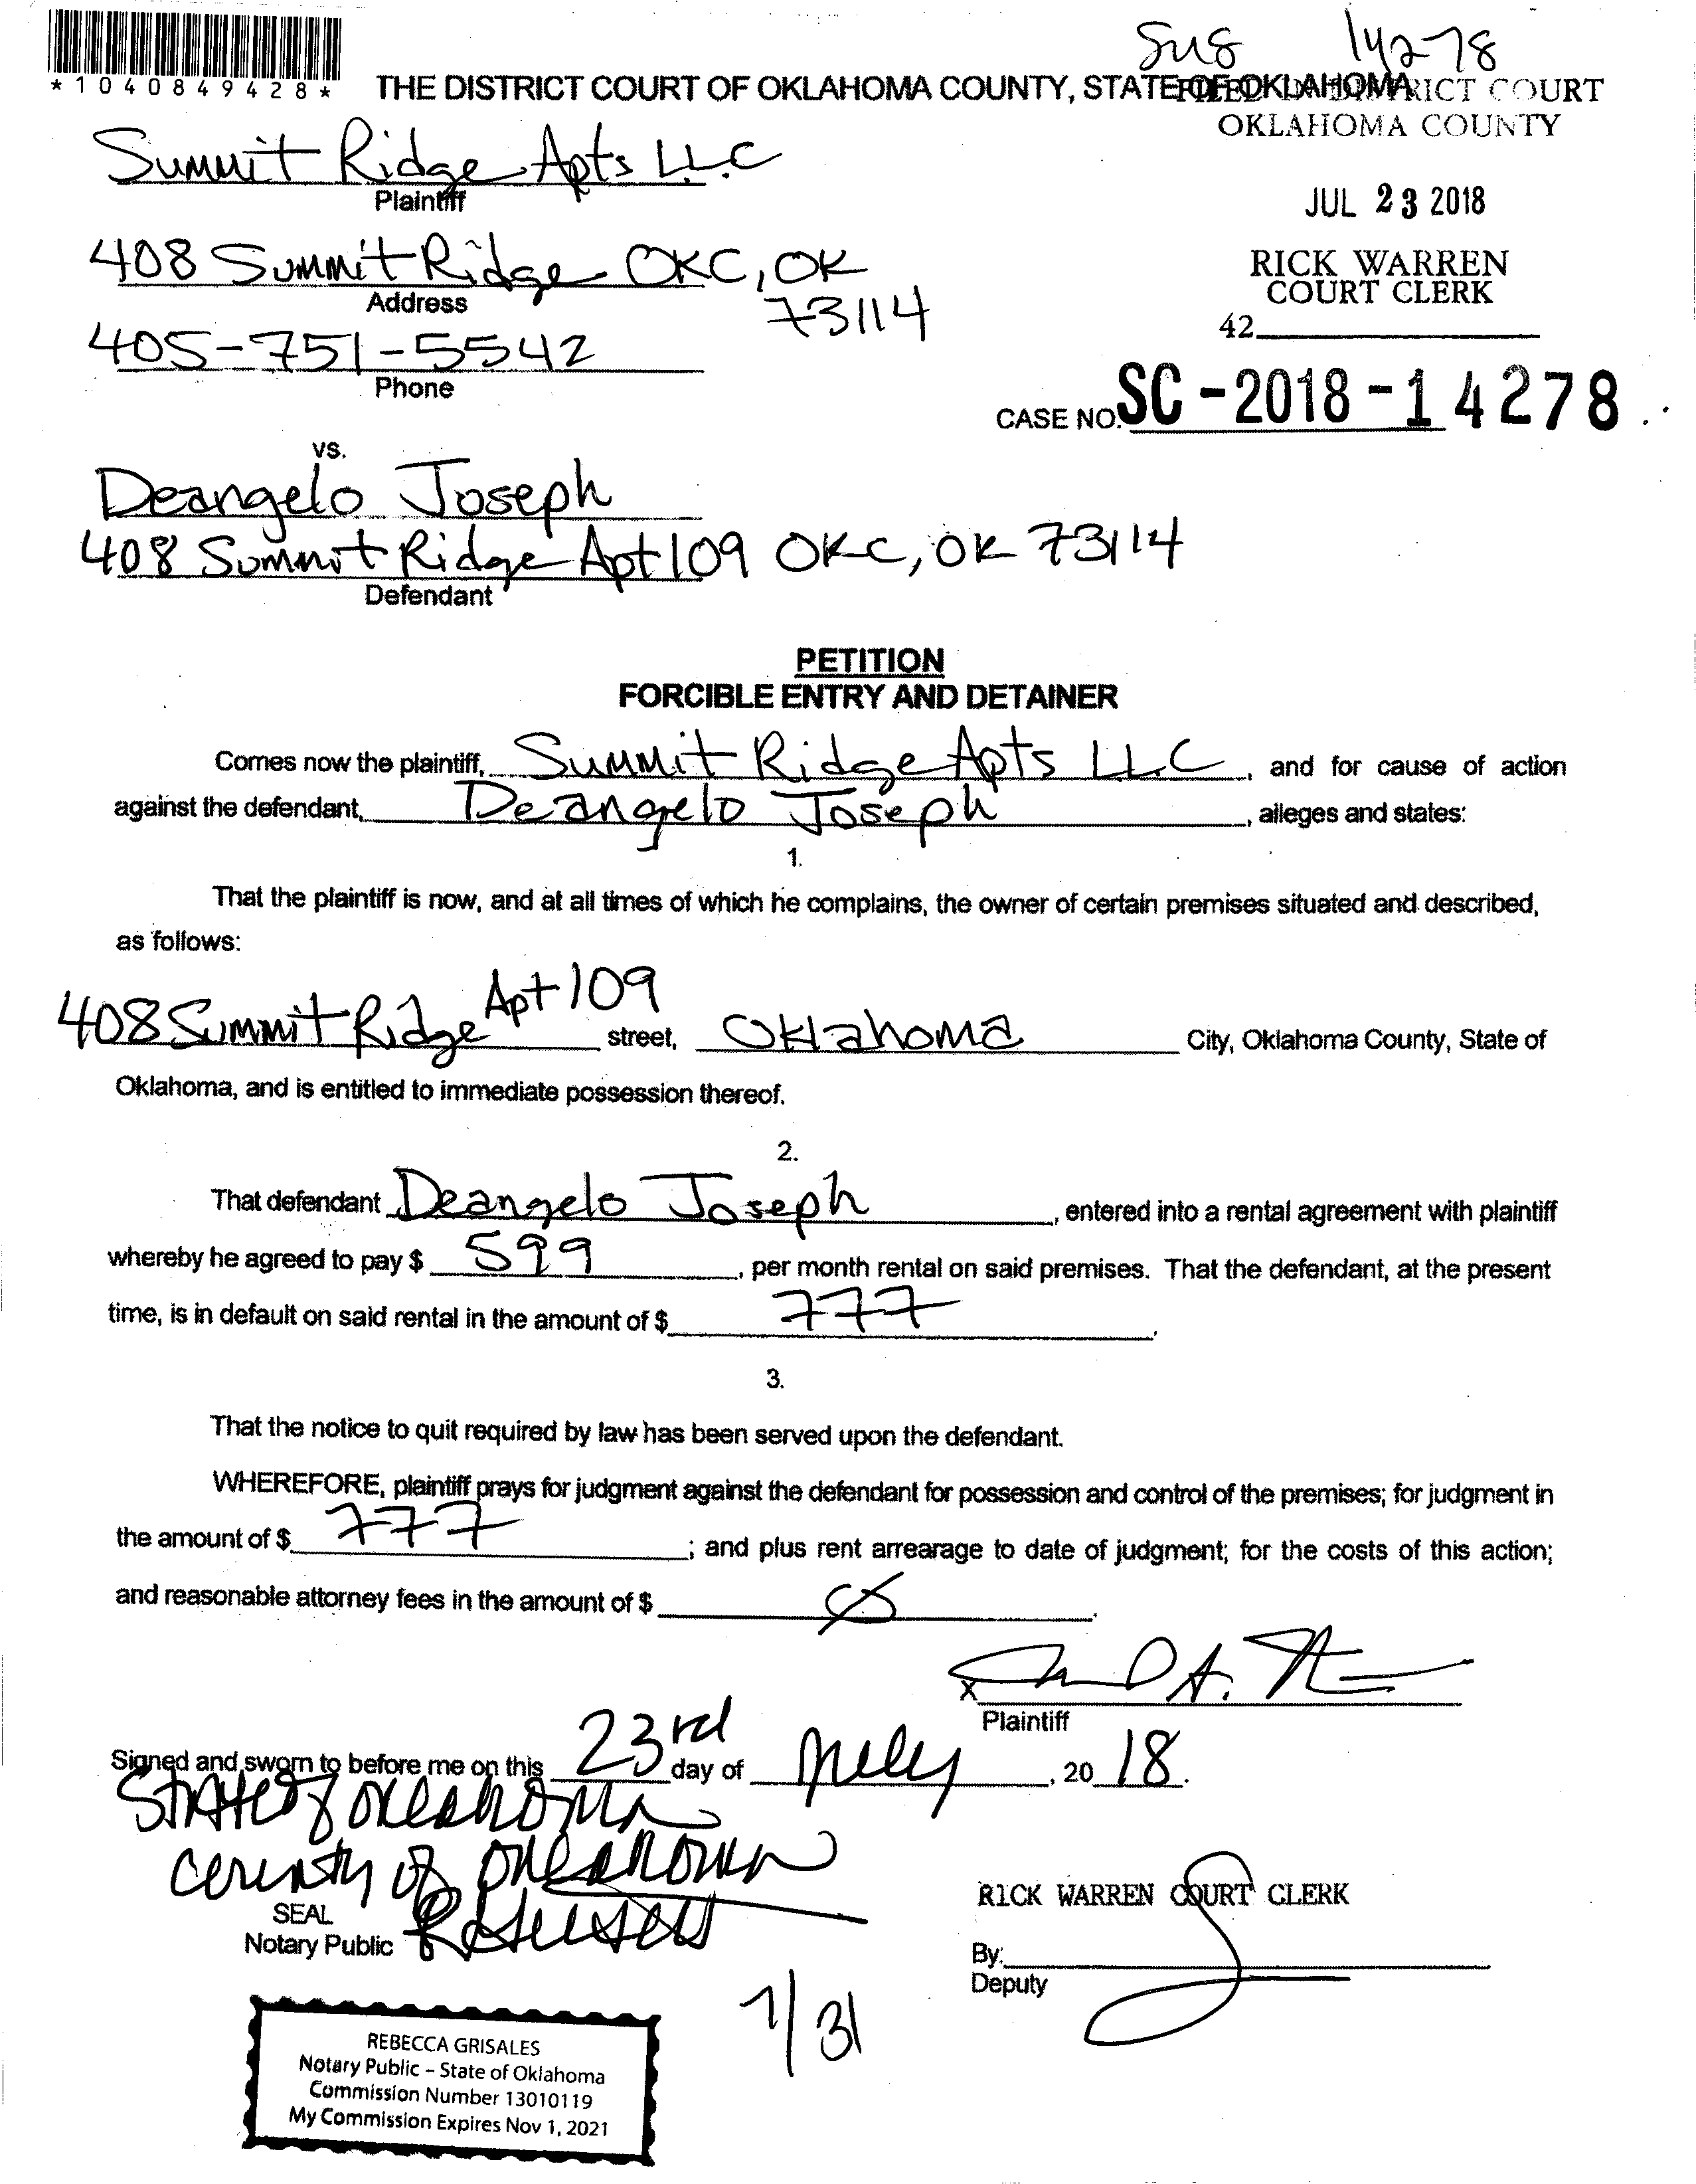 *1040849428*
Sus 14278
THE DISTRICT COURT OF OKLAHOMA COUNTY, STATE OF OKLAHOMA
FILED IN DISTRICT COURT
OKLAHOMA COUNTY
JUL 23 2018
RICK WARREN
COURT CLERK
42
Summit Ridge Apts LLC
Plaintiff
408 Summit Ridge OKC, OK
73114
Address
405-751-5542
Phone
CASE NO. SC-2018-14278
vs.
Deangelo Joseph
408 Summit Ridge Apt 109 OKC, OK 73114
Defendant
PETITION
FORCIBLE ENTRY AND DETAINER
Comes now the plaintiff, Summit Ridge Apts LLC, and for cause of action
against the defendant, Deangelo Joseph, alleges and states:
1.
That the plaintiff is now, and at all times of which he complains, the owner of certain premises situated and described,
as follows:
408 Summit Ridge Apt 109 street, Oklahoma City, Oklahoma County, State of
Oklahoma, and is entitled to immediate possession thereof.
2.
That defendant Deangelo Joseph, entered into a rental agreement with plaintiff
whereby he agreed to pay $ 599, per month rental on said premises. That the defendant, at the present
time, is in default on said rental in the amount of $ 777.
3.
That the notice to quit required by law has been served upon the defendant.
WHEREFORE, plaintiff prays for judgment against the defendant for possession and control of the premises; for judgment in
the amount of $ 777; and plus rent arrearage to date of judgment; for the costs of this action;
and reasonable attorney fees in the amount of $ Ø.
X
Plaintiff
Signed and sworn to before me on this 23rd day of July, 20 18.
State of Oklahoma
County of Oklahoma
SEAL
Notary Public
RICK WARREN COURT CLERK
By:
Deputy
7/31
REBECCA GRISALES
Notary Public – State of Oklahoma
Commission Number 13010119
My Commission Expires Nov 1, 2021